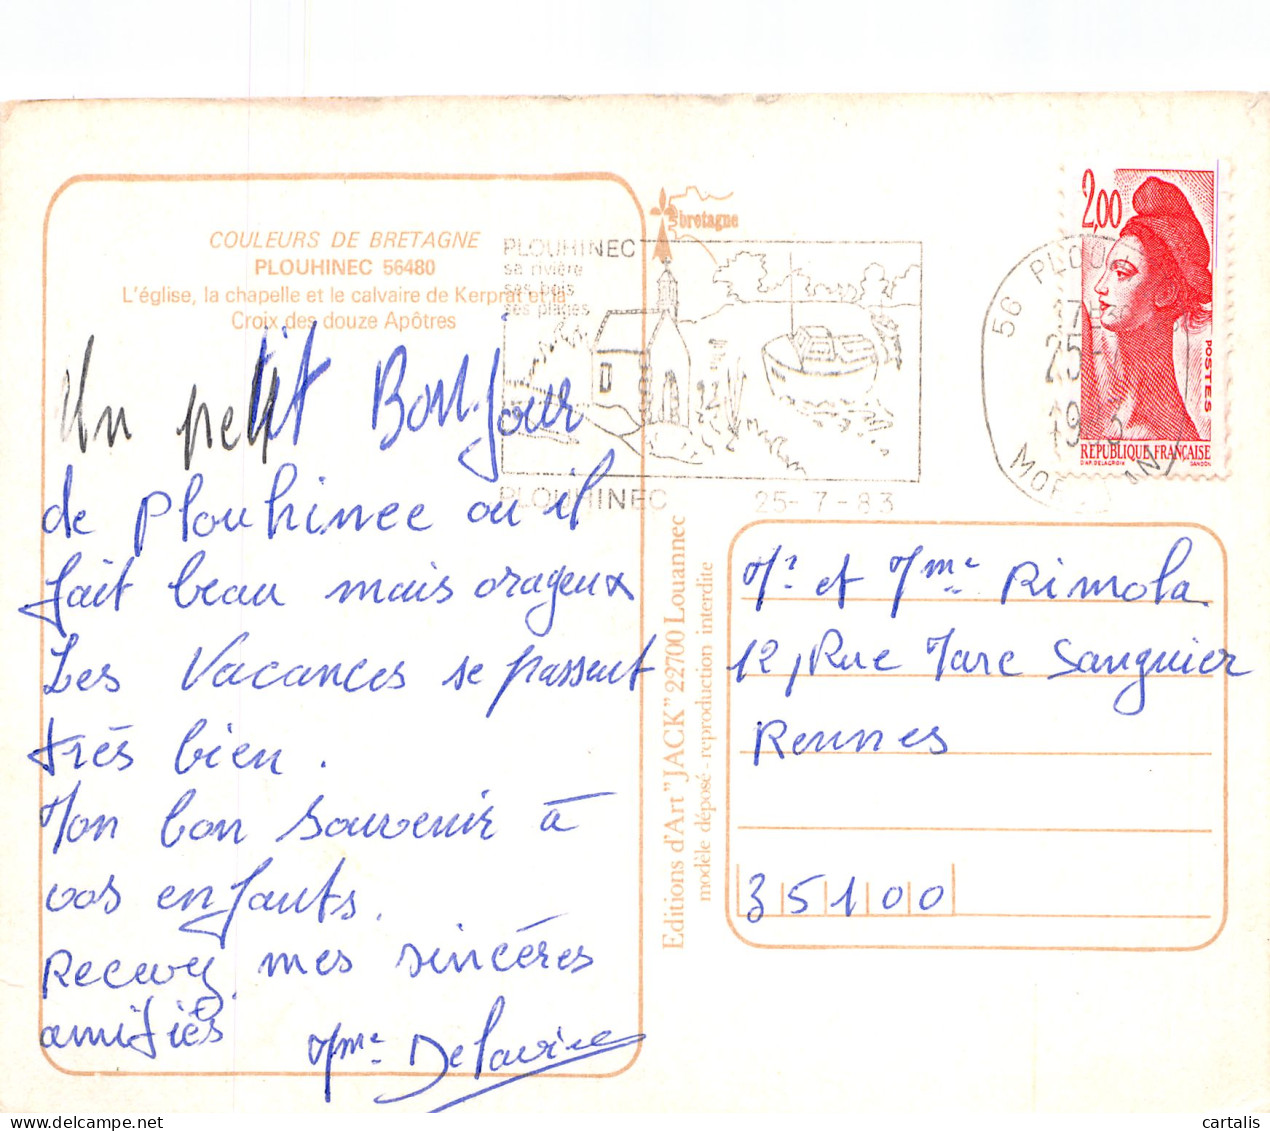 COULEURS DE BRETAGNE
PLOUHINEC 56480
L'église, la chapelle et le calvaire de Kerprat et la
Croix des douze Apôtres
Un petit Bonjour
de Plouhinec ou il
fait beau mais orageux
Les Vacances se passent
très bien.
Mon bon Souvenir à
vos enfants.
Recevez mes sincères
amitiés
Mme
bretagne
PLOUHINEC
sa rivière
ses bois
ses plages
PLOUHINEC 25-7-83
56 PLOU
17H
25-
1983
MORBIHAN
2,00
POSTES
REPUBLIQUE FRANÇAISE
D'AP. DELACROIX GANDON
Editions d'Art "JACK" 22700 Louannec
modèle déposé - reproduction interdite
Mr et Mme Rimola
12, Rue Marc Sangnier
Rennes
35100
cartalis
delcampe.net